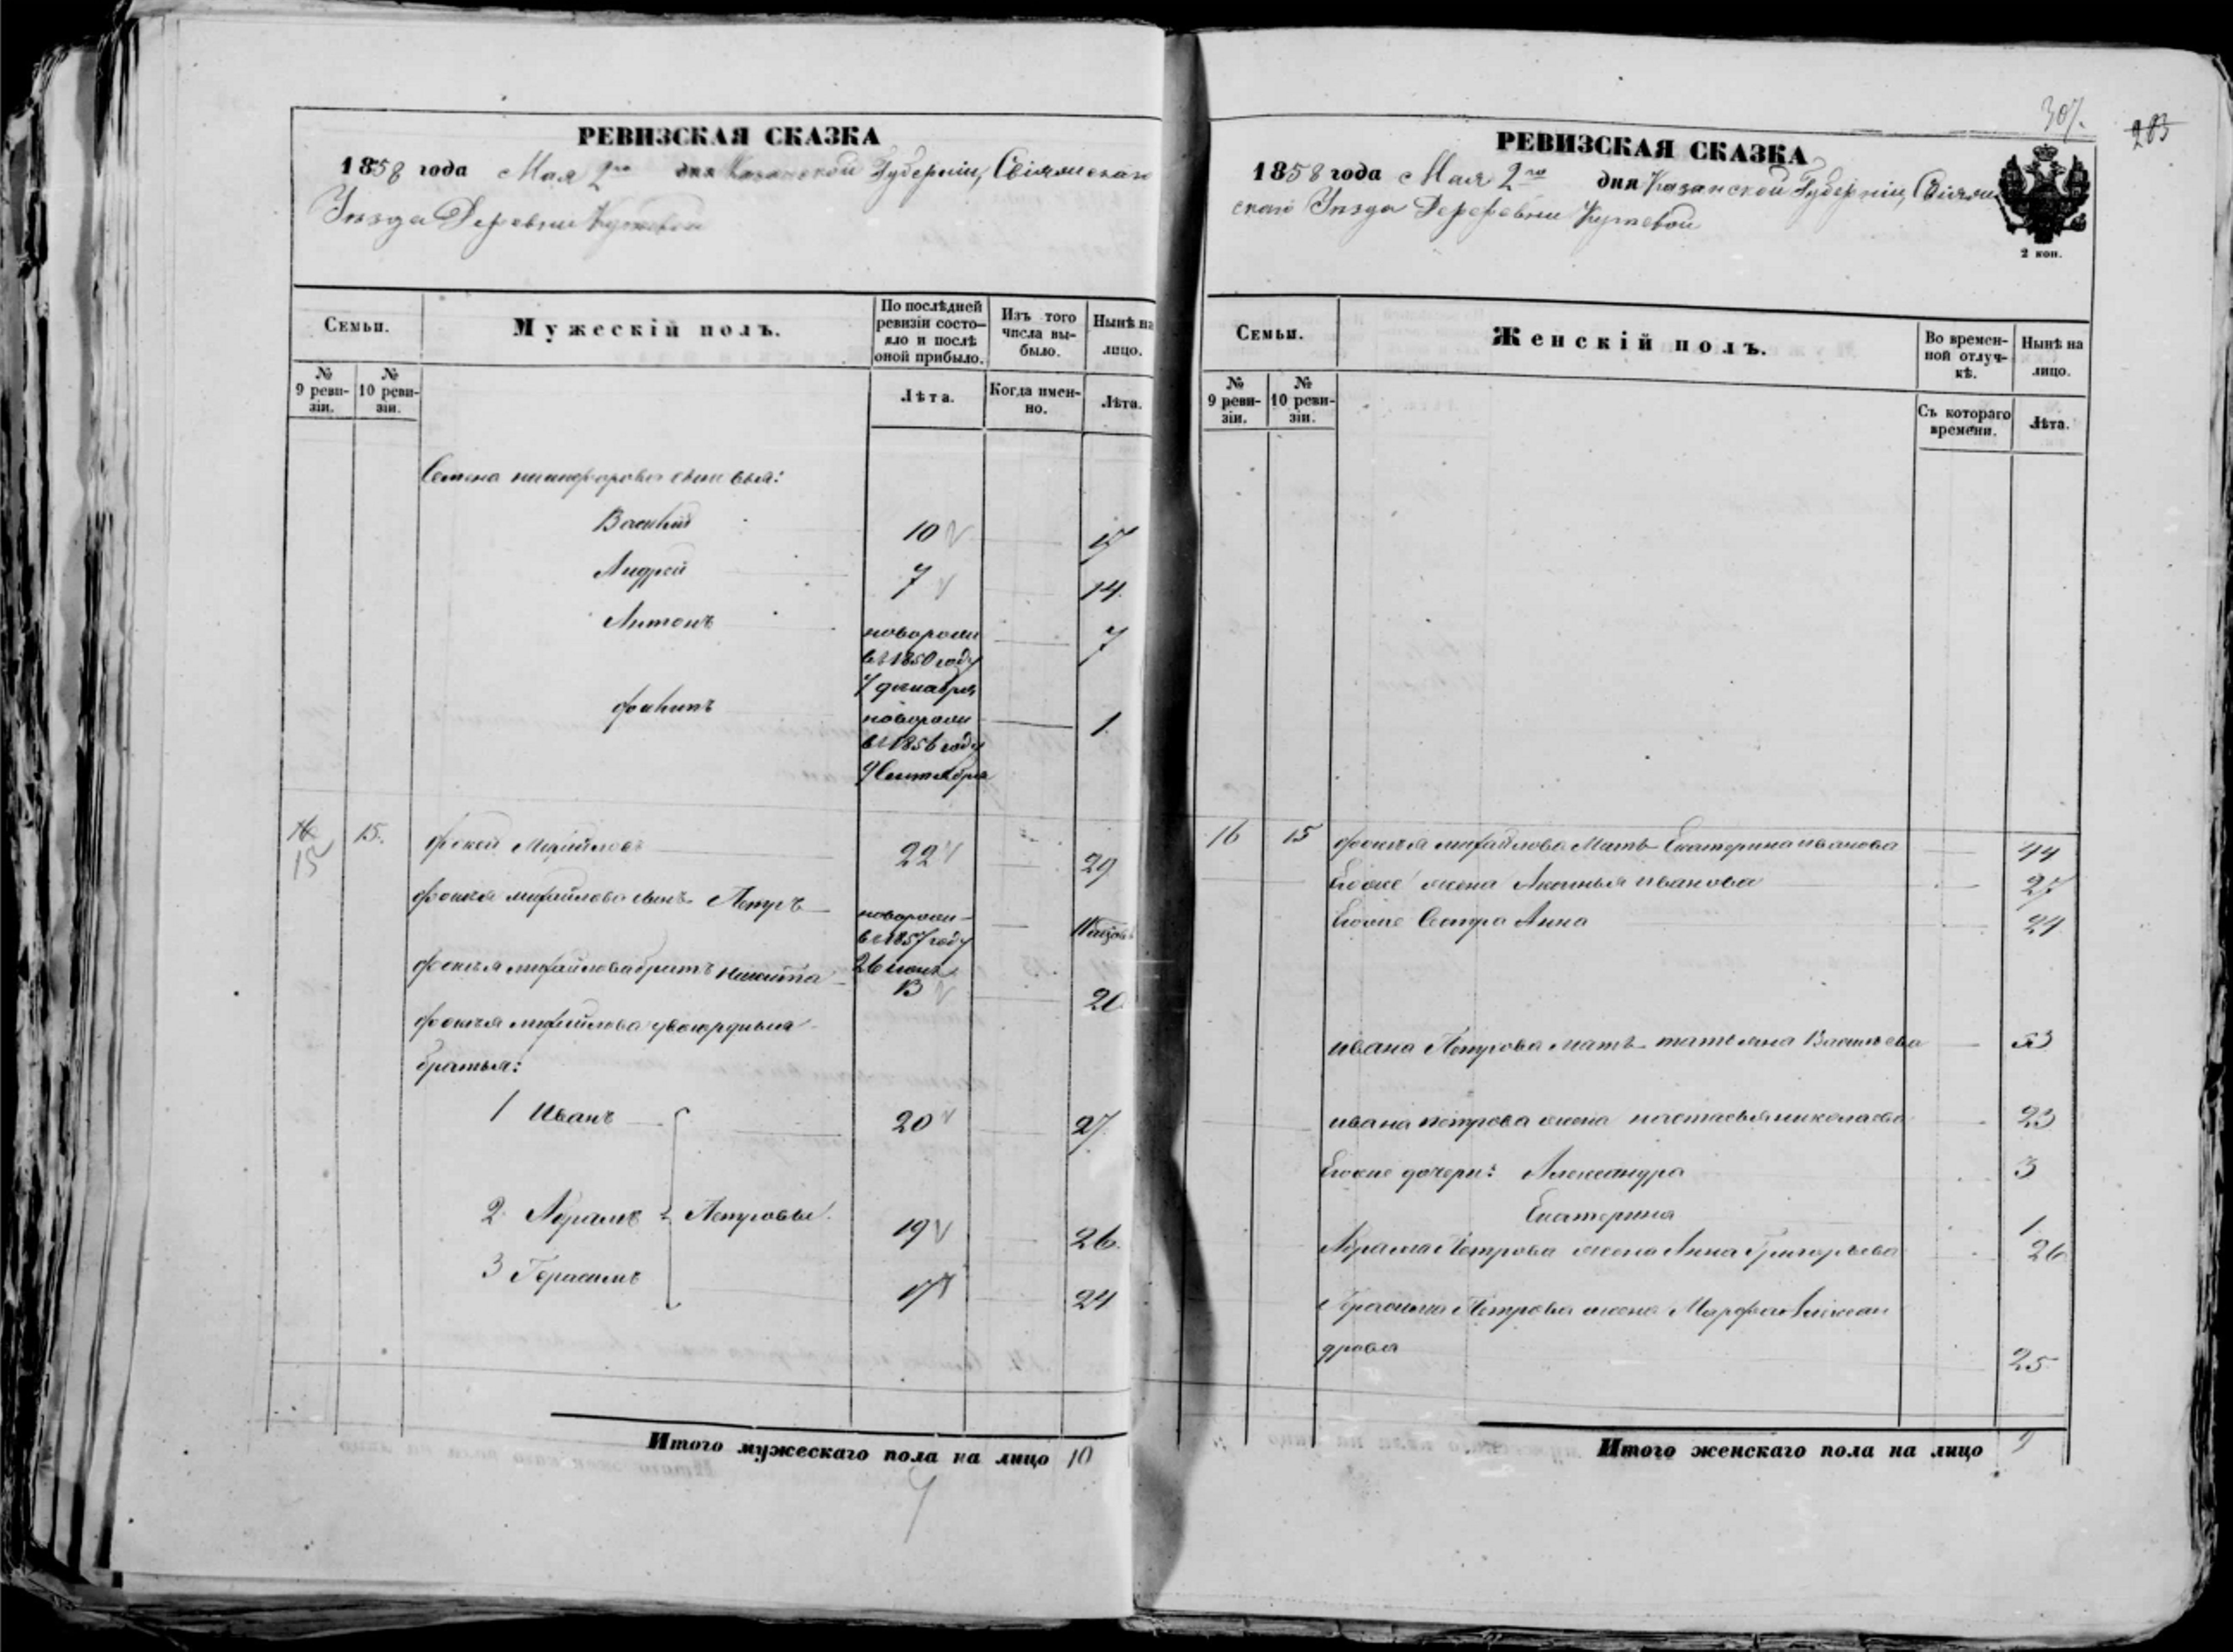 РЕВИЗСКАЯ СКАЗКА
1858 года Мая 2го дня Казанской Губерніи, Свіяжскаго
Уезда Деревни
Семьи.
Мужескій полъ.
По послѣдней ревизіи состояло и послѣ оной прибыло.
Изъ того числа выбыло.
Нынѣ на лицо.
№ 9 ревизіи.
№ 10 ревизіи.
Лѣта.
Когда именно.
Лѣта.
Семена никифорова сыновья:
Василий 10 17
Андрей 7 14.
Антонъ новорож 7
въ 1850 году
7 декабря
филипъ новорож 1
въ 1856 году
9 Сентября
16 15. фокей Михайловъ 22 29
15
фокея михайлова сынъ Петръ новорож
въ 1857 году
26 июня
фокея михайлова братъ никита 13 20
фокея михайлова двоюрдныя
братья:
1 Иванъ 20 27.
2 Абрамъ Петровы. 19 26.
3 Герасимъ 17 24
Итого мужескаго пола на лицо 10
307.
203
РЕВИЗСКАЯ СКАЗКА
1858 года Мая 2го дня Казанской Губерніи, Свіяж
скаго Уезда
2 коп.
Семьи.
Женскій полъ.
Во временной отлучкѣ.
Нынѣ на лицо.
№ 9 ревизіи.
№ 10 ревизіи.
Съ котораго времени.
Лѣта.
16 15 фокея михайлова Мать Екатерина иванова 44
Егоже жена Акинья иванова 27
Егоже Сестра Анна 21
ивана Петрова мать татьяна Васильева 53
ивана петрова жена настасья николаева 23
Егоже дочери: Александра 3
Екатерина 1
Абрама Петрова жена Анна Григорьева 26
Герасима Петрова жена Марфа Алексан
дрова 25
Итого женскаго пола на лицо 9